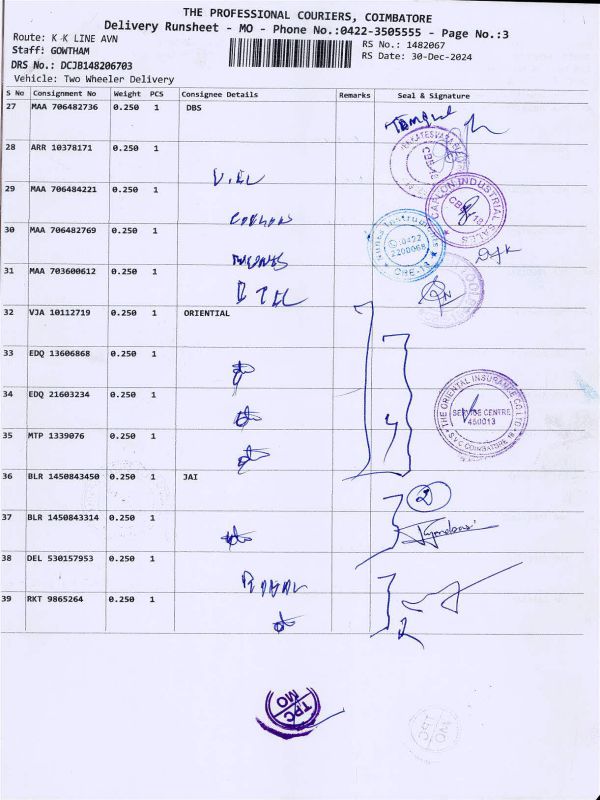 THE PROFESSIONAL COURIERS, COIMBATORE
Delivery Runsheet - MO - Phone No.:0422-3505555 - Page No.:3
Route: K K LINE AVN
Staff: GOWTHAM
DRS No.: DCJB148206703
Vehicle: Two Wheeler Delivery
RS No.: 1482067
RS Date: 30-Dec-2024
S No Consignment No Weight PCS Consignee Details Remarks Seal & Signature
27 MAA 706482736 0.250 1 DBS
28 ARR 10378171 0.250 1
29 MAA 706484221 0.250 1
30 MAA 706482769 0.250 1
31 MAA 703600612 0.250 1
32 VJA 10112719 0.250 1 ORIENTIAL
33 EDQ 13606868 0.250 1
34 EDQ 21603234 0.250 1
35 MTP 1339076 0.250 1
36 BLR 1450843450 0.250 1 JAI
37 BLR 1450843314 0.250 1
38 DEL 530157953 0.250 1
39 RKT 9865264 0.250 1
CAPCON INDUSTRIAL SALES
0422
2200068
CBE-13
THE ORIENTAL INSURANCE CO LTD
SERVICE CENTRE
450013
SVC COIMBATORE
4
2
2
TPC
MO
TPC
MO